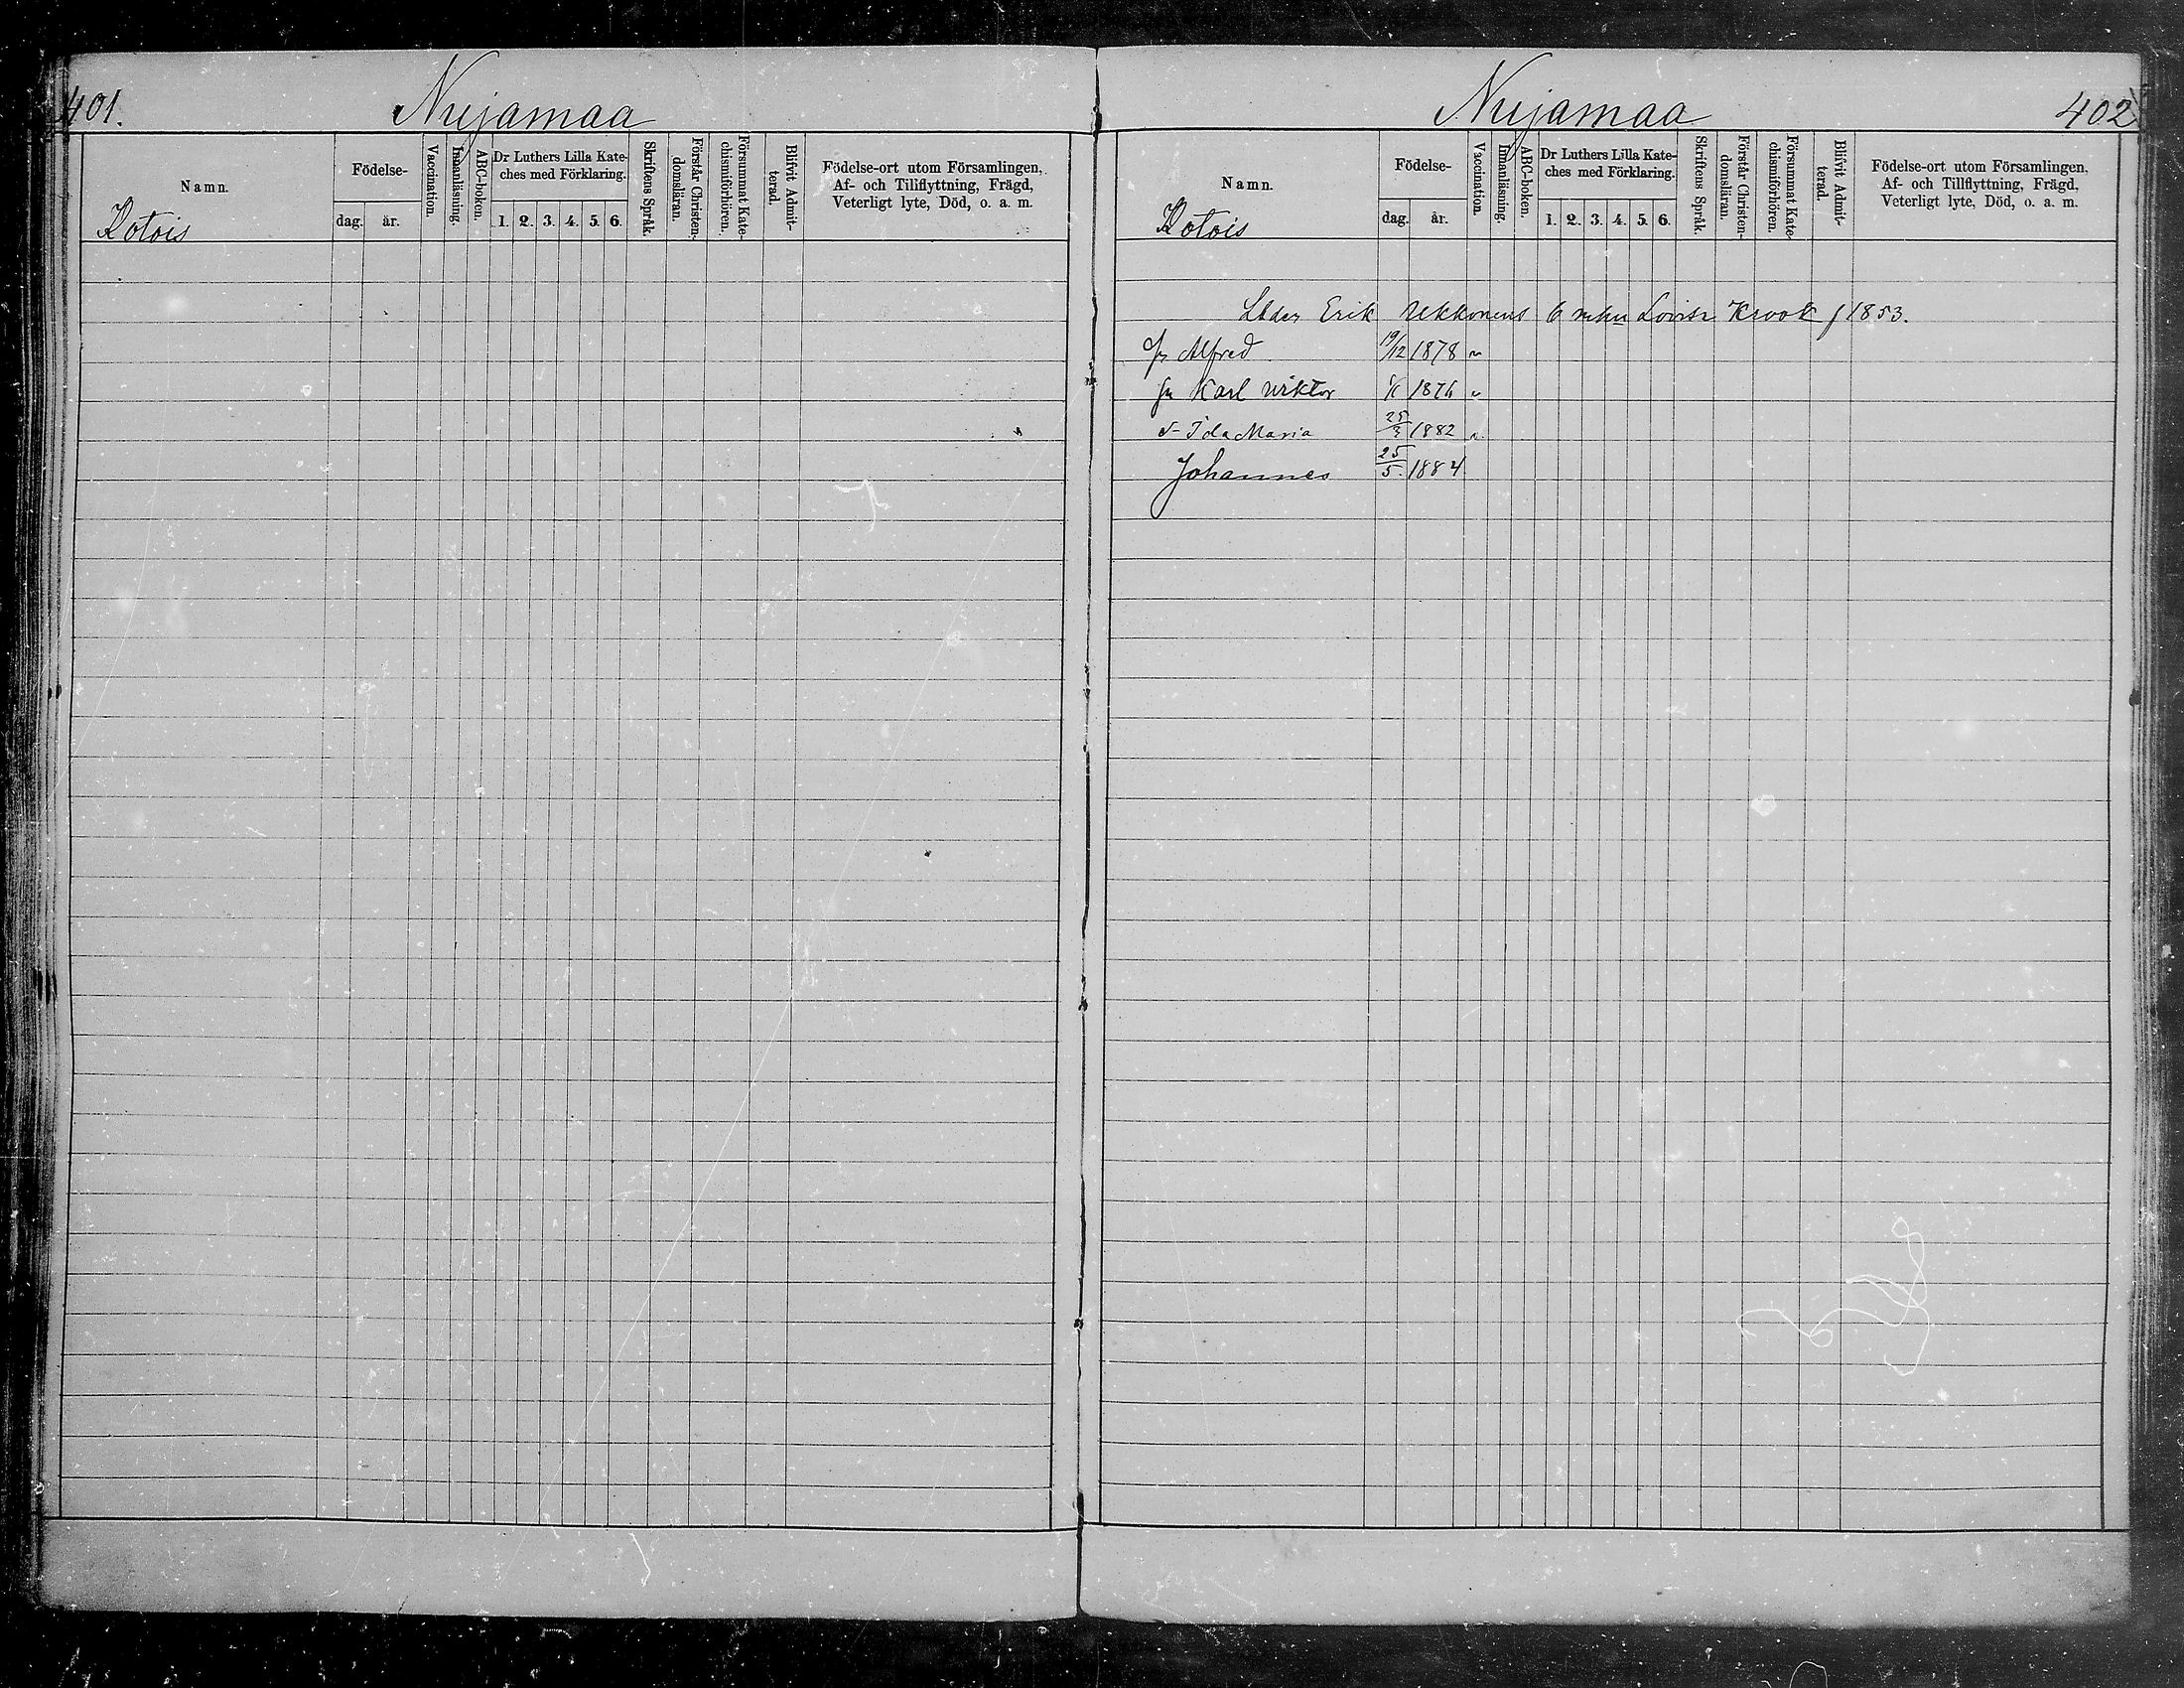 401.
Nuijamaa
Namn.
Kotois
Födelse-
dag. år.
Vaccination.
Innanläsning.
ABC-boken.
Dr Luthers Lilla Kate-
ches med Förklaring.
1. 2. 3. 4. 5. 6.
Skriftens Språk.
Förstår Christen-
domsläran.
Försummat Kate-
chismiförhören.
Blifvit Admit-
terad.
Födelse-ort utom Församlingen,
Af- och Tillflyttning, Frägd,
Veterligt lyte, Död, o. a. m.
Nuijamaa
402
Namn.
Kotois
Födelse-
dag. år.
Vaccination.
Innanläsning.
ABC-boken.
Dr Luthers Lilla Kate-
ches med Förklaring.
1. 2. 3. 4. 5. 6.
Skriftens Språk.
Förstår Christen-
domsläran.
Försummat Kate-
chismiförhören.
Blifvit Admit-
terad.
Födelse-ort utom Församlingen,
Af- och Tillflyttning, Frägd,
Veterligt lyte, Död, o. a. m.
Erik Ukkonens Lovisa Krook f 1853.
Alfred 19/12 1878
Karl Viktor
Ida Maria 25/3 1882
Johannes 25/5. 1884